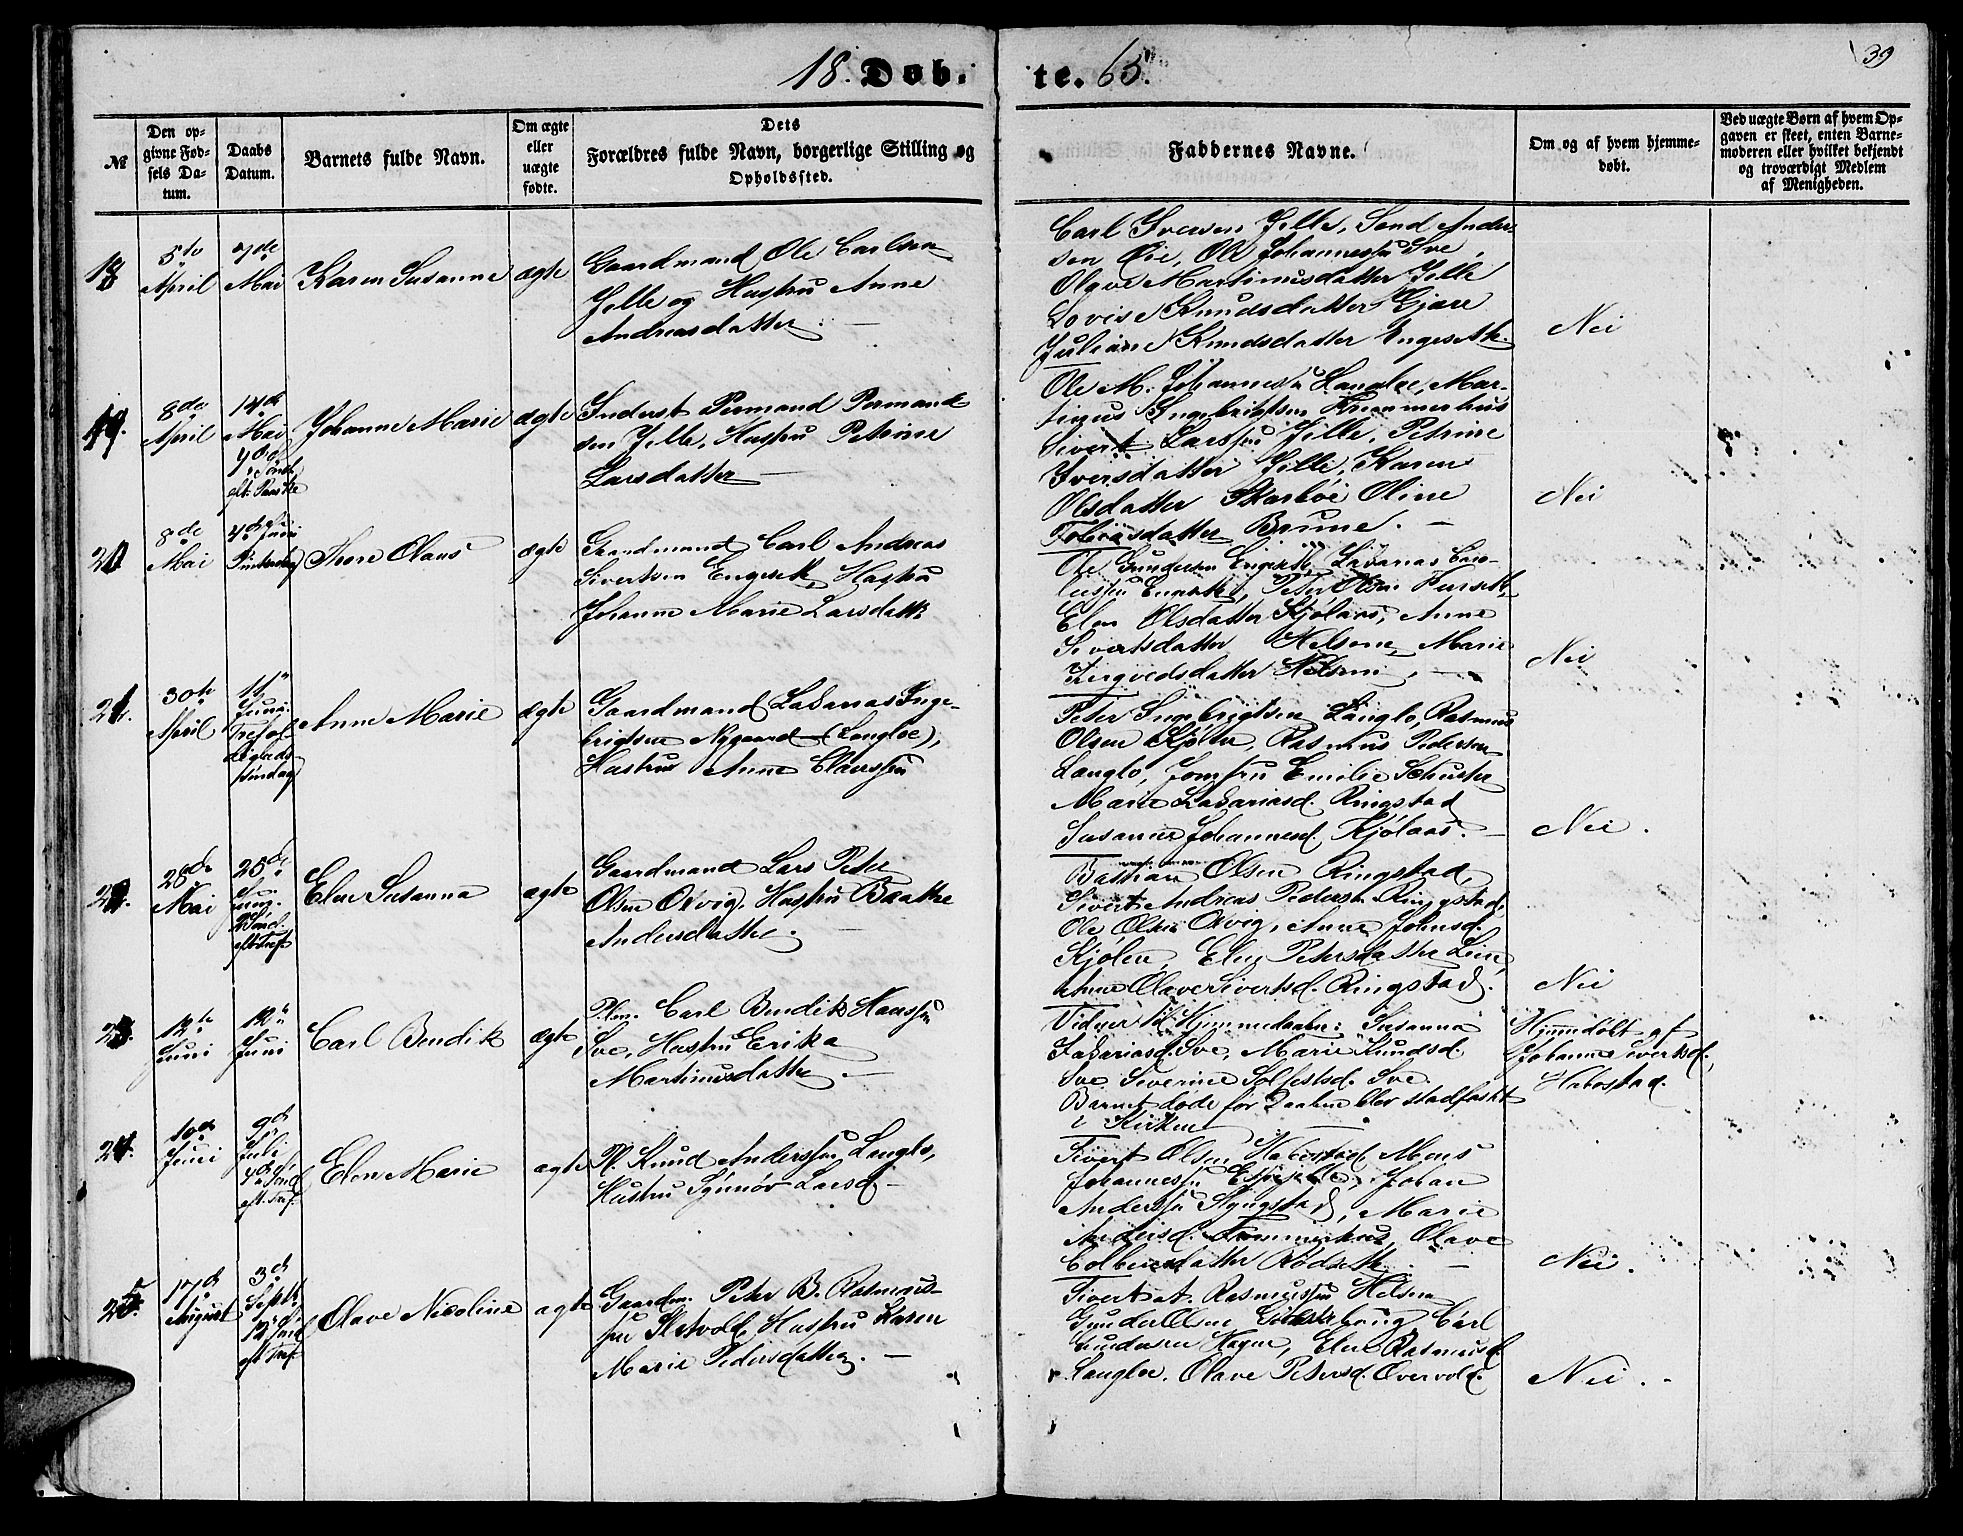 18. Døb-
te. 65.
39
№
Den op-
givne Fød-
sels Da-
tum.
Daabs
Datum.
Barnets fulde Navn.
Om ægte
eller
uægte
fødte.
Dets
Forældres fulde Navn, borgerlige Stilling og
Opholdssted.
Faddernes Navne.
Om og af hvem hjemme-
døbt.
Ved uægte Børn af hvem Op-
gaven er skeet, enten Barne-
moderen eller hvilket bekjendt
og troværdigt Medlem
af Menigheden.
18
5te
April
7de
Mai
Karen Susanne
ægte
Gaardmand Ole Carlsen
Jelle og Hustru Anne
Andreasdatter. —
Carl Iversen Jelle, Send Ander
sen Øie, Ole Johannessen Sve,
Olave Martinusdatter Jelle
Lovise Knudsdatter Gjære
Juliane Knudsdatter Engeseth.
Nei
19.
8de
April
14de
Mai
4de Sønd.
eft. Paaske
Johanne Marie
ægte
Inderst Permand Permand
sen Jelle, Hustru Petrine
Larsdatter —
Ole M. Johannessen Langløe, Mar-
tinus Ingebrigtsen
Sivert Larssen Jelle, Petrine
Iversdatter Jelle, Karen
Olsdatter Skarbøe Oline
Tobiasdatter Brune. —
Nei
20
8de
Mai
4de Juni
Pintsedag
Thore Olaus
ægte
Gaardmand Carl Andreas
Sivertsen Engeseth Hustru
Johanne Marie Larsdattr
Ole Gundersen Engeseth, Lasarias Caro-
liussen Engeseth, Peter Olsen Furseth,
Elen Olsdatter Kjølaas, Anne
Sivertsdatter Helsem, Marie
datter Helsem. —
Nei
21.
30te
April
11te
Juni
Trefol
digheds
søndag
Anne Marie
ægte
Gaardmand Lasarias Inge-
brigtsen Nygaard (Langløe),
Hustru Anne Clausen
Peter Ingebrigtsen Langlø, Rasmus
Olsen Kjølen, Rasmus Pedersen
Langlø, Jomfru Emilie Schuster
Marie Lasariasd. Ringstad
Susanne Johannesd. Kjølaas. —
Nei.
22.
28de
Mai
25de
Juni
2 Sønd.
eft Tref.
Elen Susanna
ægte
Gaardmand Lars Peter
Olsen Oxvig. Hustru Baathe
Andersdatter. —
Bastian Olsen Ringstad,
Sivert Andreas Pedersen Ringstad,
Ole Olsen Oxvig, Anne Johnsd.
Kjølen, Elen Petersdatter Leien,
Anne Olave Sivertsd. Ringstad.
Nei
23.
12te
Juni
12te
Juni
Carl Bendik
ægte
Plm. Carl Bendik Hanssen
Sve, Hustru Erika
Martinusdatter. —
Vidner til Hjemmedaaben: Susanna
Lasariasd. Sve, Marie Knudsd.
Sve Severine Solfestsd. Sve.
Barnet døde før Daaben blev stadfæstet
i Kirken —
Hjemdøbt af
Johanne Sivertsd.
Habostad.
24.
10de
Juni
9de
Juli
4de Sønd
eft. Tref.
Elen Marie
ægte
Pl. Knud Anderssen Langlø,
Hustru Synnøv Larsd. —
Sivert Olsen Habostad Mons
Johannessen Espehjelle, Johan
Anderssen Ringstad, Marie
Andersd. Tømmerhus, Olave
datter Rødseth —
Nei.
25.
17de
August
3de
Septbr.
12te Sønd
eft Tref.
Olave Nicoline
ægte
Gaardm. Peter B. Rasmus-
sen Sletvold, Hustru Karen
Marie Pedersdatter. —
Sivert A. Rasmussen Helsem
Gunder Olsen Carl
Gundersen Hagen, Elen Rasmusd.
Langløe. Olave Petersd. Overvold.
Nei. -